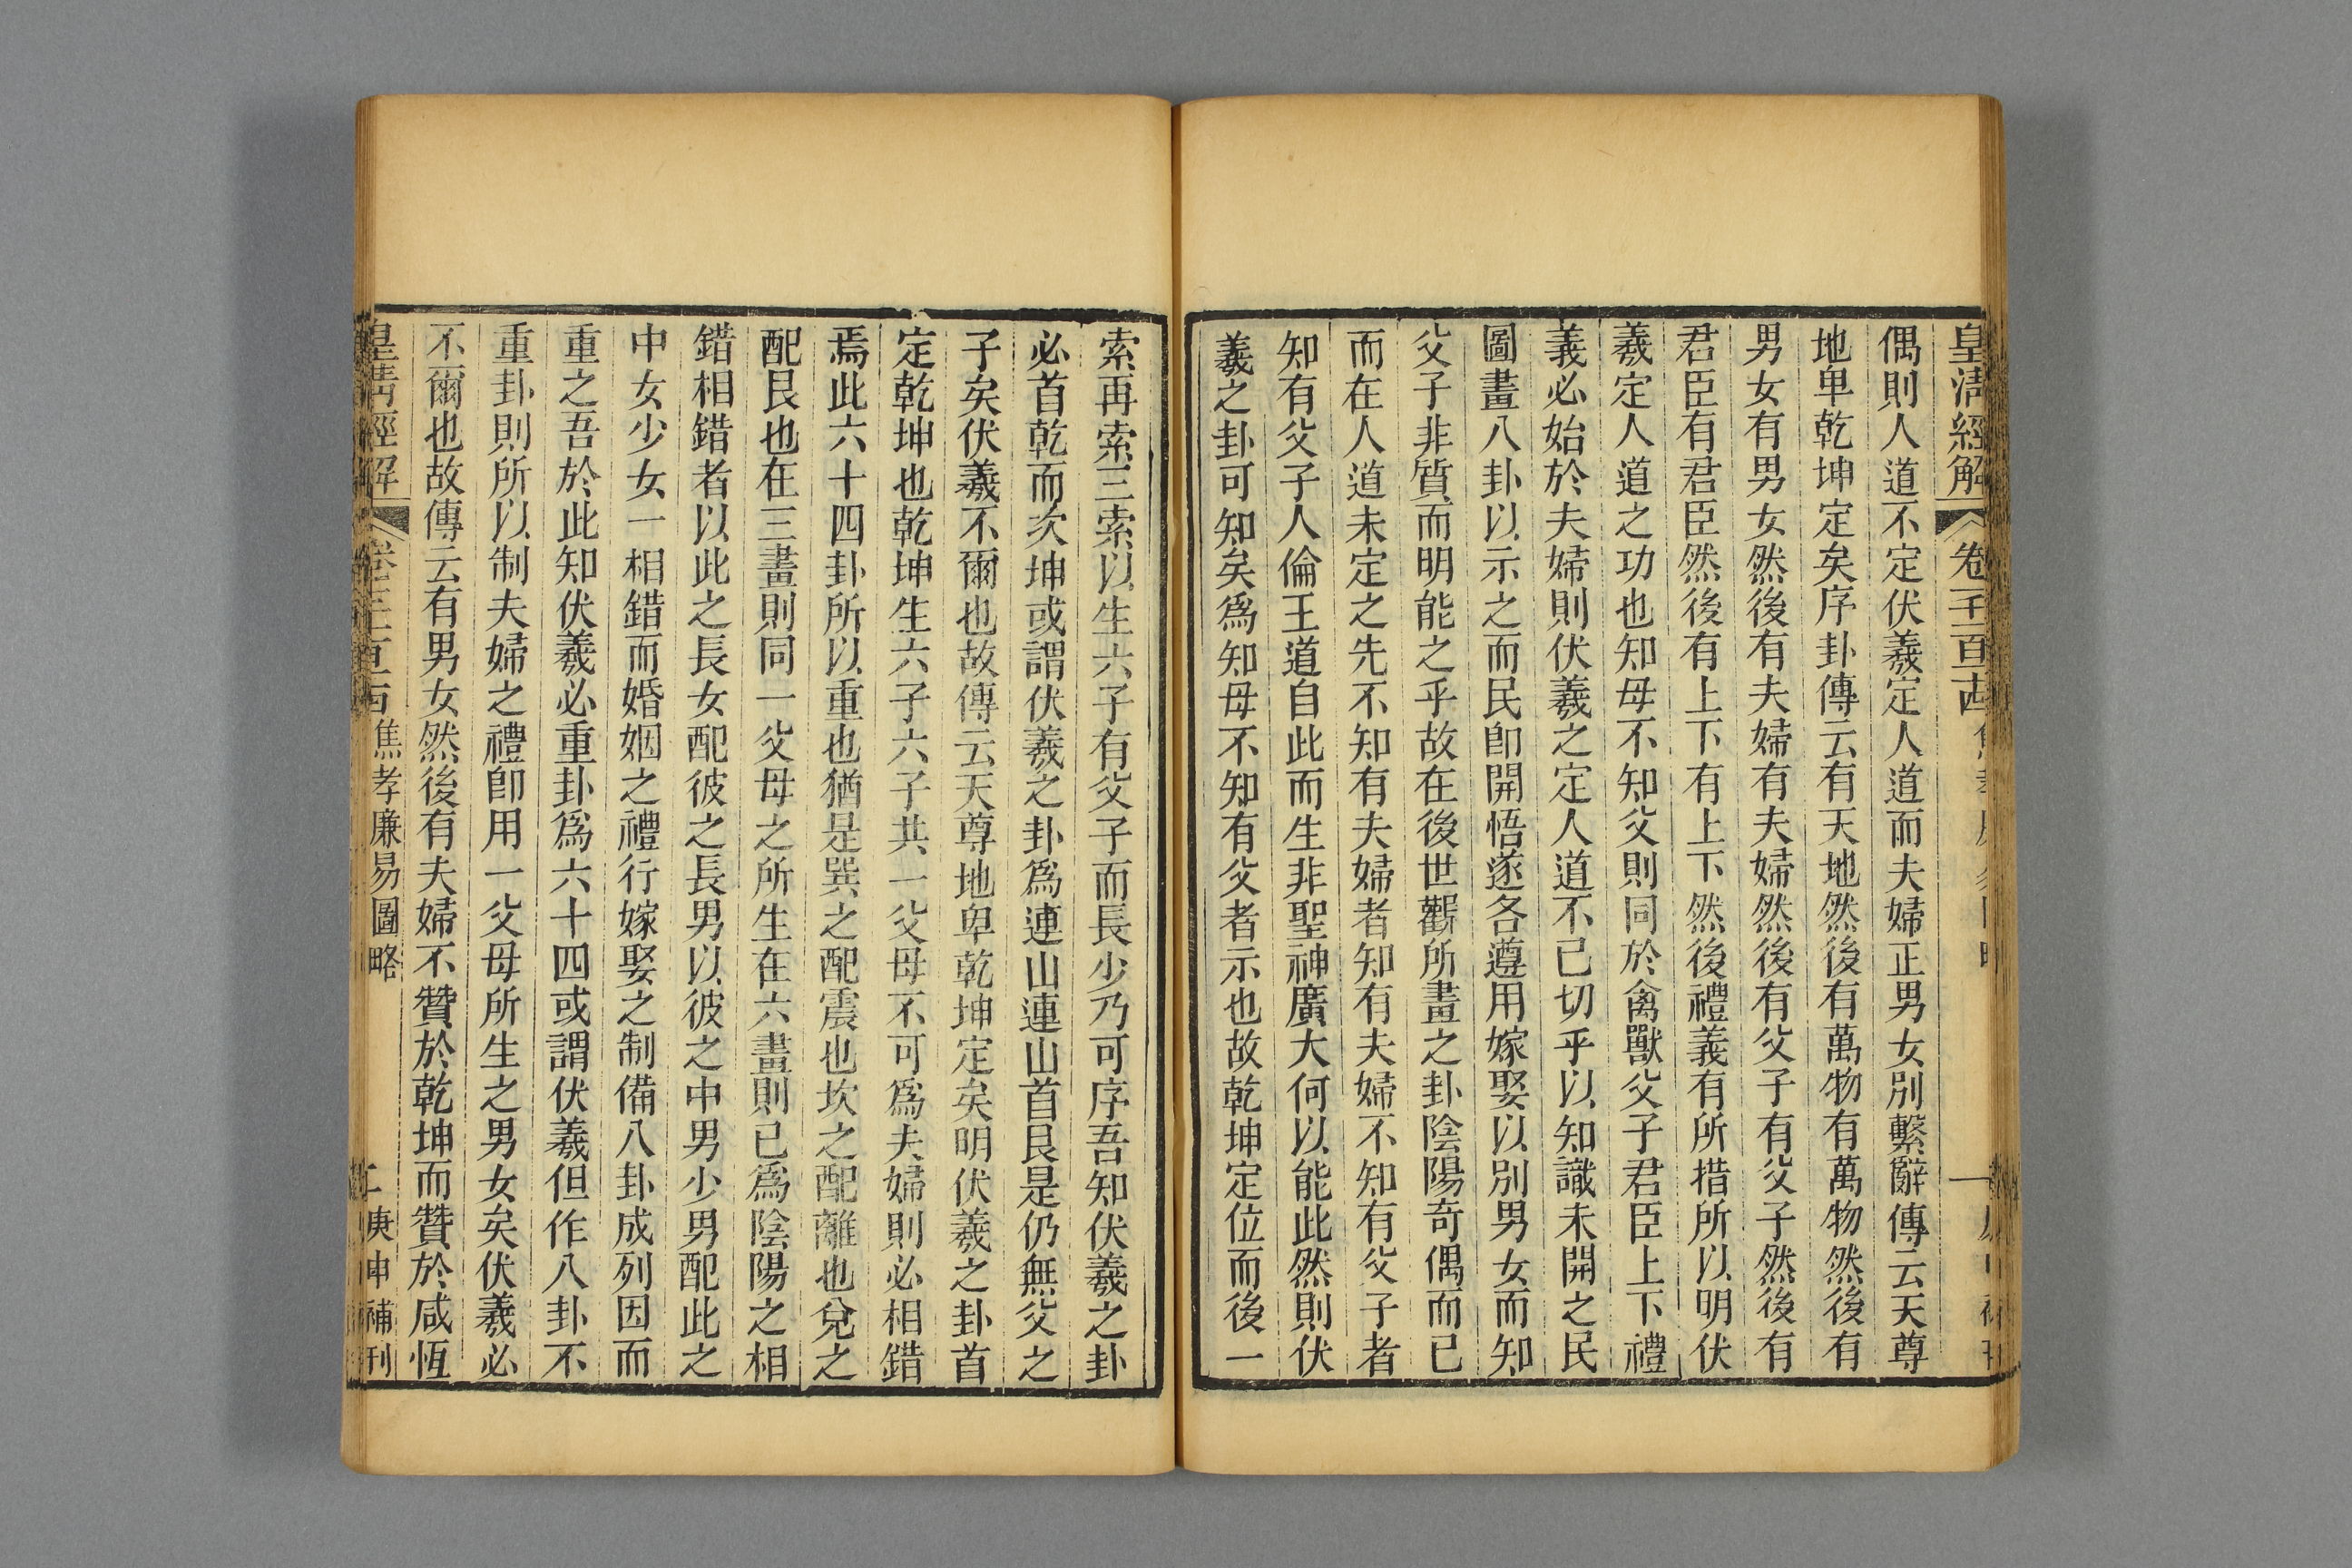 皇清經解 卷千百十四
偶則人道不定伏羲定人道而夫婦正男女別繫辭傳云天尊
地卑乾坤定矣序卦傳云有天地然後有萬物有萬物然後有
男女有男女然後有夫婦有夫婦然後有父子有父子然後有
君臣有君臣然後有上下有上下然後禮義有所措所以明伏
羲定人道之功也知母不知父則同於禽獸父子君臣上下禮
義必始於夫婦則伏羲之定人道不已切乎以知識未開之民
圖畫八卦以示之而民卽開悟遂各遵用嫁娶以別男女而知
父子非質而明能之乎故在後世觀所畫之卦陰陽奇偶而已
而在人道未定之先不知有夫婦者知有夫婦不知有父子者
知有父子人倫王道自此而生非聖神廣大何以能此然則伏
羲之卦可知矣爲知母不知有父者示也故乾坤定位而後一
索再索三索以生六子有父子而長少乃可序吾知伏羲之卦
必首乾而次坤或謂伏羲之卦爲連山連山首艮是仍無父之
子矣伏羲不爾也故傳云天尊地卑乾坤定矣明伏羲之卦首
定乾坤也乾坤生六子六子共一父母不可爲夫婦則必相錯
焉此六十四卦所以重也猶是巽之配震也坎之配離也兌之
配艮也在三畫則同一父母之所生在六畫則已爲陰陽之相
錯相錯者以此之長女配彼之長男以彼之中男少男配此之
中女少女一相錯而婚姻之禮行嫁娶之制備八卦成列因而
重之吾於此知伏羲必重卦爲六十四或謂伏羲但作八卦不
重卦則所以制夫婦之禮卽用一父母所生之男女矣伏羲必
不爾也故傳云有男女然後有夫婦不贊於乾坤而贊於咸恆
皇清經解 焦孝廉易圖略 二 庚申補刊